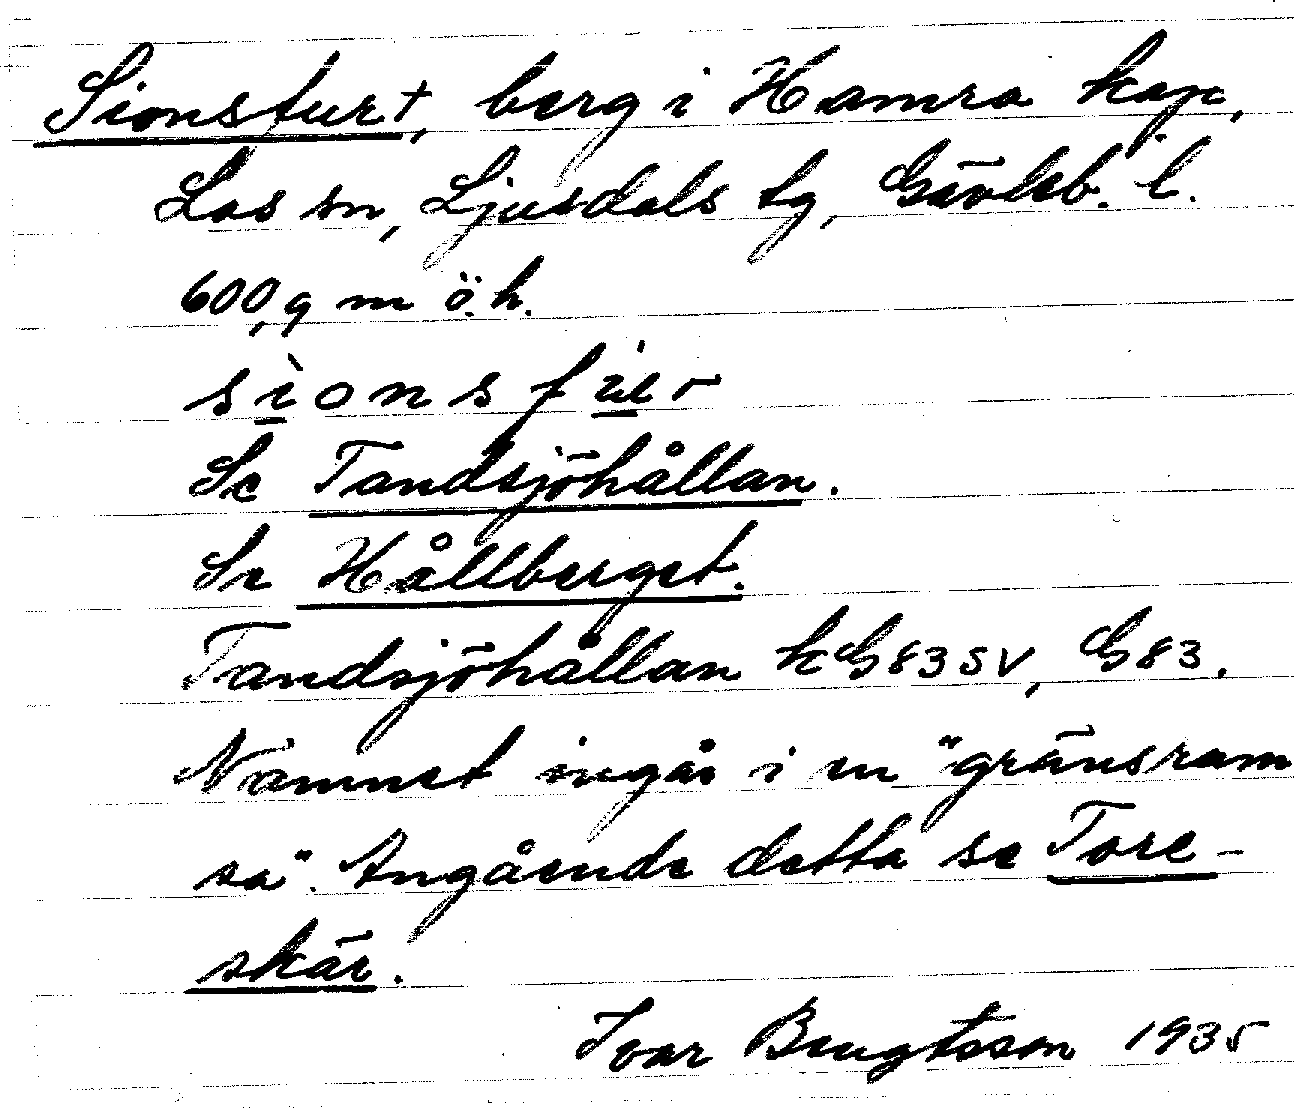 Sionsfurt, berg i Hamra kap,
Los sn, Ljusdals tg, Gävleb. l.
600,9 m ö.h.
sìonsfur
Se Tandsjöhållan.
Se Hållberget.
Tandsjöhållan kG83SV, G83.
Namnet ingår i en "gränsram
sa". Angående detta se Tore-
skär.
Ivar Bengtsson 1935